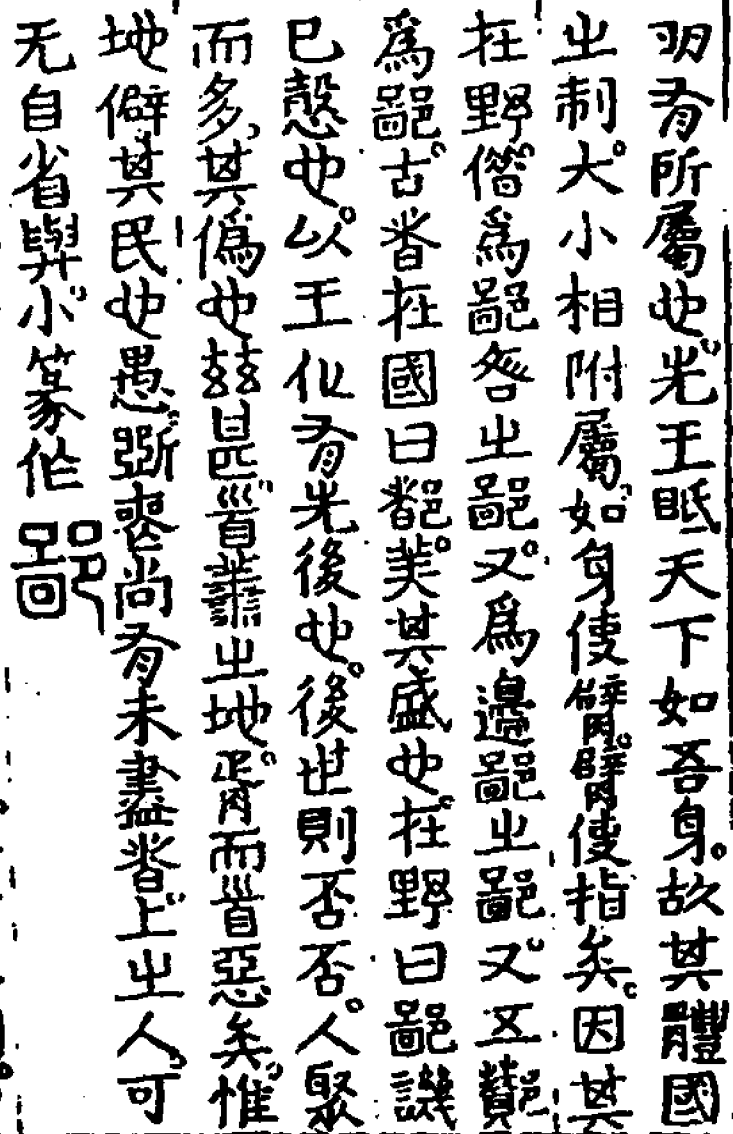 明有所屬也先王眂天下如吾身故其體國
之制大小相附屬如身使臂臂使指矣因其
在野借爲鄙吝之鄙又爲邊鄙之鄙又五酇
爲鄙古者在國曰都美其盛也在野曰鄙譏
已慤也以王化有先後也後世則否否人聚
而多其僞也兹昰首善之地胥而首惡矣惟
地僻其民也愚斲喪尚有未盡者上之人可
无自省與小篆作鄙